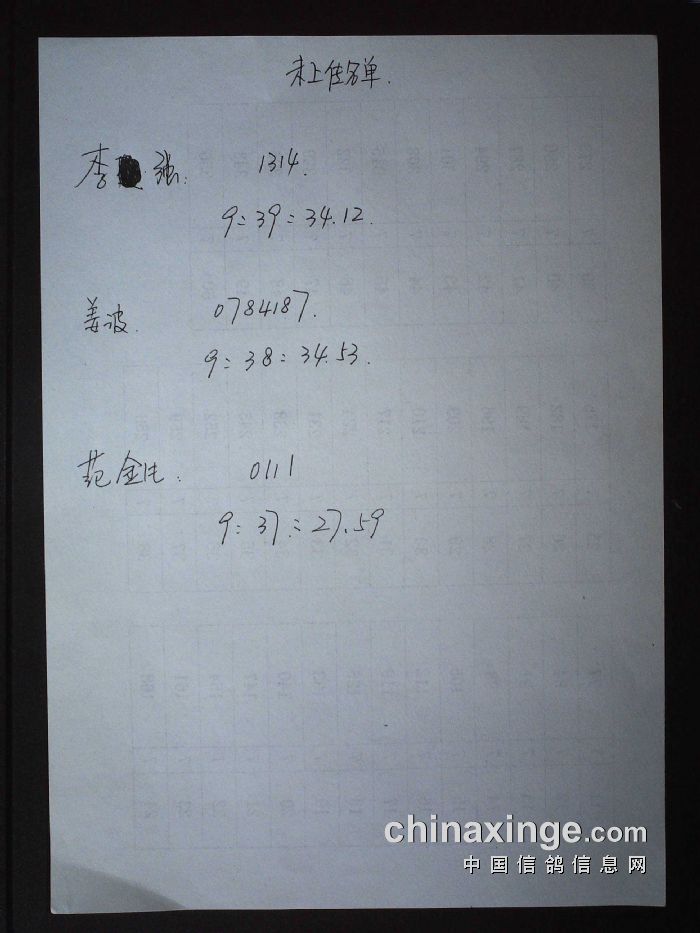 未上传名单.
李 强: 1314.
9:39:34.12.
姜波. 0784187.
9:38:34.53.
范金 : 0111
9:37:27.59
chinaxinge.com
中国信鸽信息网